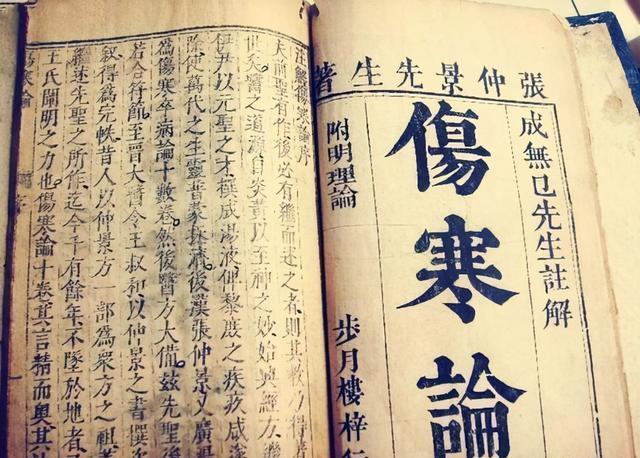 張仲景先生著
成無已先生註解
傷寒論
附明理論
步月樓梓
注解傷寒論序
夫前聖有作後必有繼而述之者則其教乃得著
世矣醫之道源自炎黃以至神之妙始興經方
伊尹以元聖之才撰成湯液俾黎庶之疾疚咸
除使萬代之生靈普蒙拯濟後漢張仲景又廣
為傷寒卒病論十數卷然後醫方大備茲先聖後
若合符節至晉太醫令王叔和以仲景之書撰次
叙得為完帙昔人以仲景方一部為眾方之祖蓋
繼述先聖之所作迄今千有餘年不墜於地者
王氏闡明之力也傷寒論十卷其言精而奧其
寒論